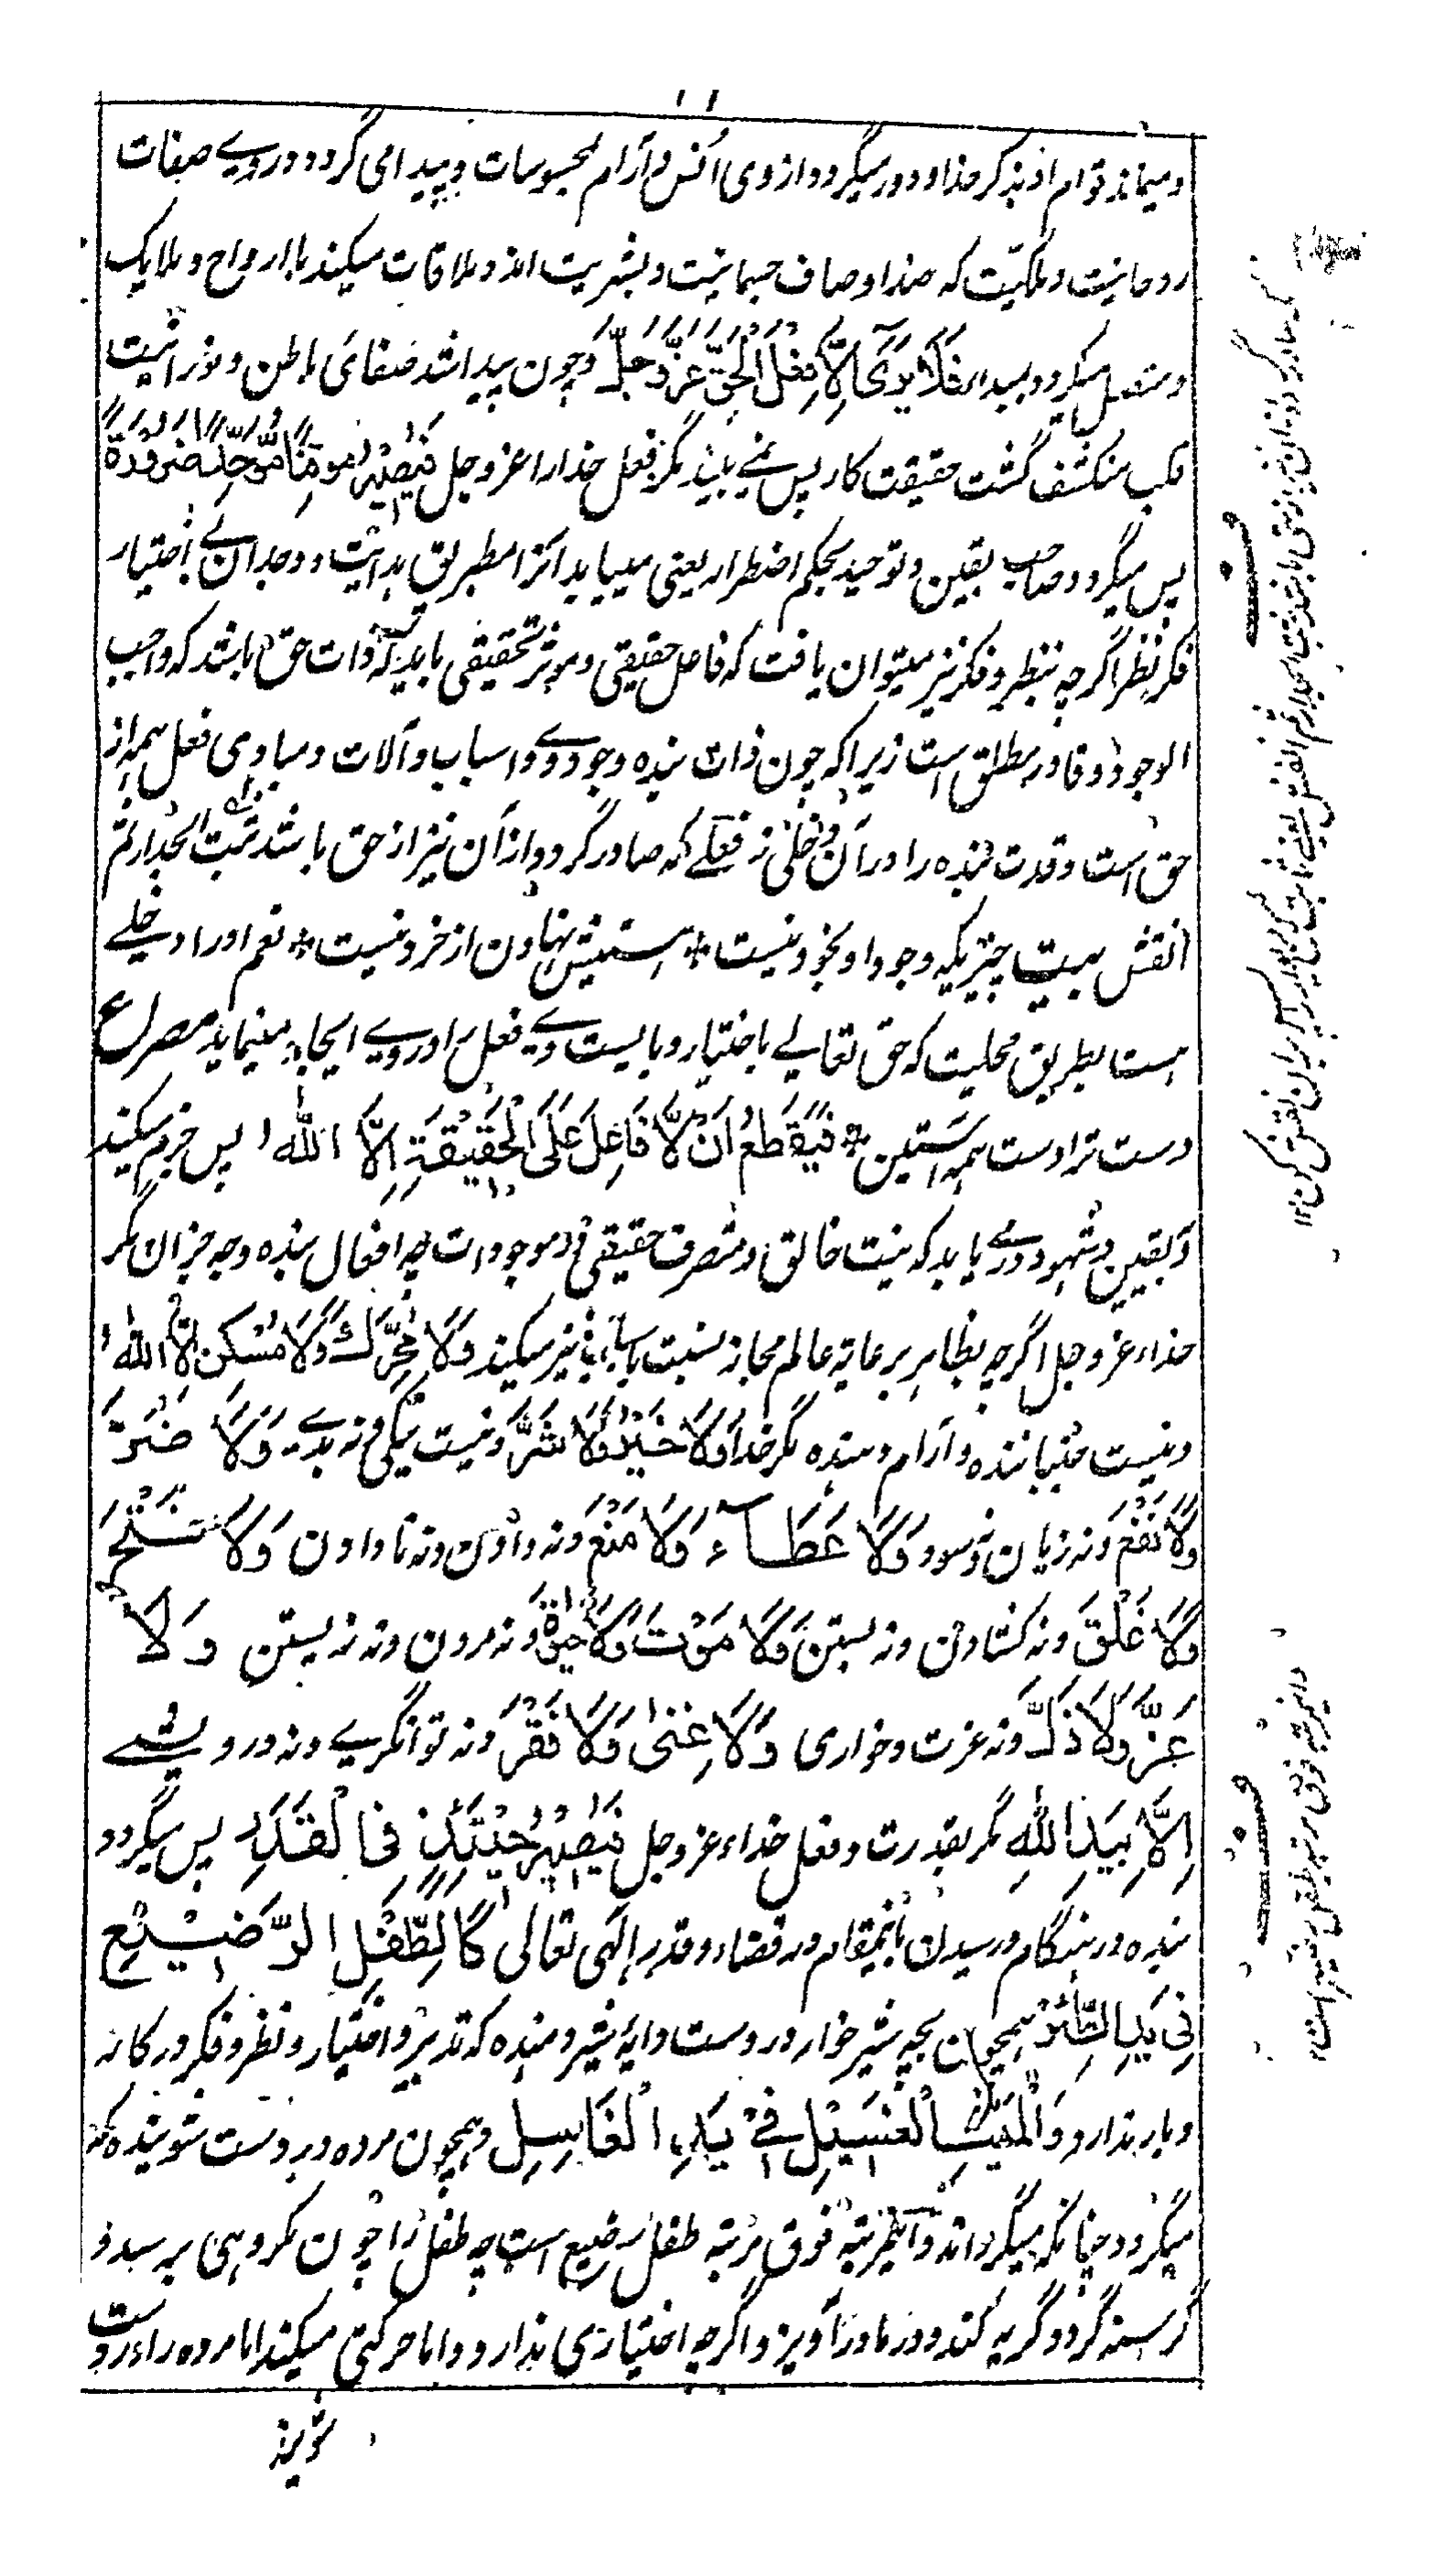 ۱۱
و میماند توام او بذکر خدا و دور میگردد از وی انس و آرام بمحسوسات و پیدا می گردد در وے صفات
روحانیت و ملکیت که ضد اوصاف جسمانیت و بشریت اند و ملاقات میکند با ارواح و ملایک
و متصل میگردد بمبداء فَلَا يَرٰى اِلَّا فِعْلَ الْحَقِّ عَزَّ وَجَلَّ و چون پیدا شد صفائی باطن و نورانیت
قلب منکشف گشت حقیقت کار پس نمے بیند مگر فعل خدا را عز و جل فَيَصِيْرُ مُوْقِنًا مُوَحِّدًا ضَرُوْرَةً
پس میگردد صاحب یقین و توحید بحکم اضطرار یعنی میباید آنرا بطریق بداہت و وجدان بے اختیار
فکر و نظر اگرچه بنظر و فکر نیز میتوان یافت که فاعل حقیقی و موثر تحقیقی باید که ذات حق باشد که واجب
الوجود و قادر مطلق است زیرا که چون ذات بنده و وجود وے و اسباب و آلات و مبادی فعل همه از
حق است و قدرت بنده را در آن دخلی نه فعلے که صادر گردد ازان نیز از حق باشد ثبت الجدار ثم
انقش بیت چیزیکه وجود او بخود نیست * هستیش نهادن از خرد نیست * نعم او را دخلے
هست بطریق محلیت که حق تعالے باختیار و بایست وے فعل را در وے ایجاد مینماید مصراع
دست تو اوست همه آستین * فَيَقْطَعُ اَنْ لَّا فَاعِلَ عَلَى الْحَقِيْقَةِ اِلَّا اللهُ پس جزم میکند
و بیقین و شهود در مے یابد که نیست خالق و متصرف حقیقی در موجودات چه افعال بنده و چه جز آن مگر
خداء عز و جل اگرچه بظاهر برعایه عالم مجاز نسبت باسباب نیز میکند وَلَا مُحَرِّكَ وَلَا مُسَكِّنَ اِلَّا اللهُ
و نیست جنباننده و آرام دهنده مگر خدا وَلَا خَيْرَ وَلَا شَرَّ و نیست نیکی و نه بدے وَلَا ضُرَّ
وَلَا نَفْعَ و نه زیان و نه سود وَلَا عَطَآءَ وَلَا مَنْعَ و نه دادن و نه نادادن وَلَا فَتْحَ
وَلَا غَلْقَ و نه کشادن و نه بستن وَلَا مَوْتَ وَلَا حَيٰوةَ و نه مردن و نه نه بستن وَلَا
عِزَّ وَلَا ذُلَّ و نه عزت و خواری وَلَا غِنٰى وَلَا فَقْرَ و نه توانگرے و نه درویشے
اِلَّا بِيَدِ اللهِ مگر بقدرت و فعل خداء عز و جل فَيَصِيْرُ حِيْنَئِذٍ فِى الْقَدَرِ پس میگردد
بنده در هنگام در رسیدن باینمقام در قضاء و قدر الهی تعالی كَالطِّفْلِ الرَّضِيْعِ
فِىْ يَدِ الظِّئْرِ همچون بچه شیرخوار در دست دایه شیر دهنده که تدبیر و اختیار و نظر و فکر در کار نه
و بار ندارد وَالْمَيِّتِ الْغَسِيْلِ فِىْ يَدِ الْغَاسِلِ و همچون مرده در دست شوینده که
میگردد چنانکه میگرداند و اینمرتبه فوق مرتبه طفل رضیع است چه طفل را چون مکروهی برسد و
گرسنه گردد گریه کند و در مادر آویزد و اگرچه اختیاری ندارد و اما حرکتی میکند اما مرده را در دست